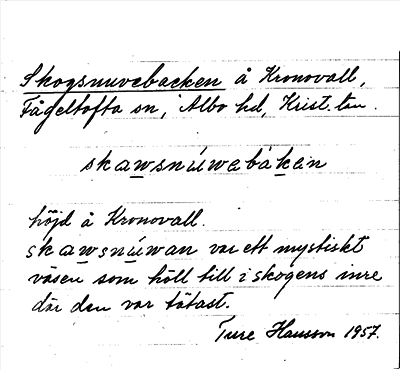 Skogsnuvebacken å Kronovall,
Fågeltofta sn, Albo hd, Krist. län.
skawsnúwebákein
höjd å Kronovall.
skawsnúwan var ett mystiskt
väsen som höll till i skogens inre
där den var tätast.
Ture Hansson 1957.